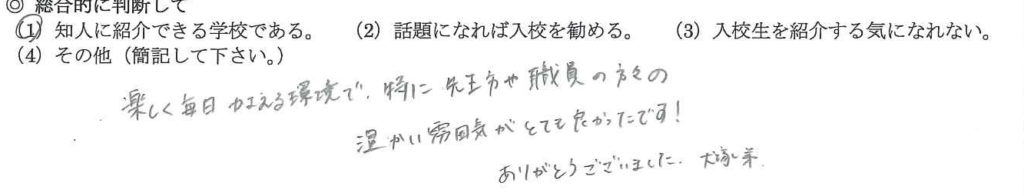 ◎ 総合的に判断して
(1) 知人に紹介できる学校である。 (2) 話題になれば入校を勧める。 (3) 入校生を紹介する気になれない。
(4) その他（簡記して下さい。）
楽しく毎日かよえる環境で、特に先生方や職員の方々の
温かい雰囲気がとても良かったです！
ありがとうございました。